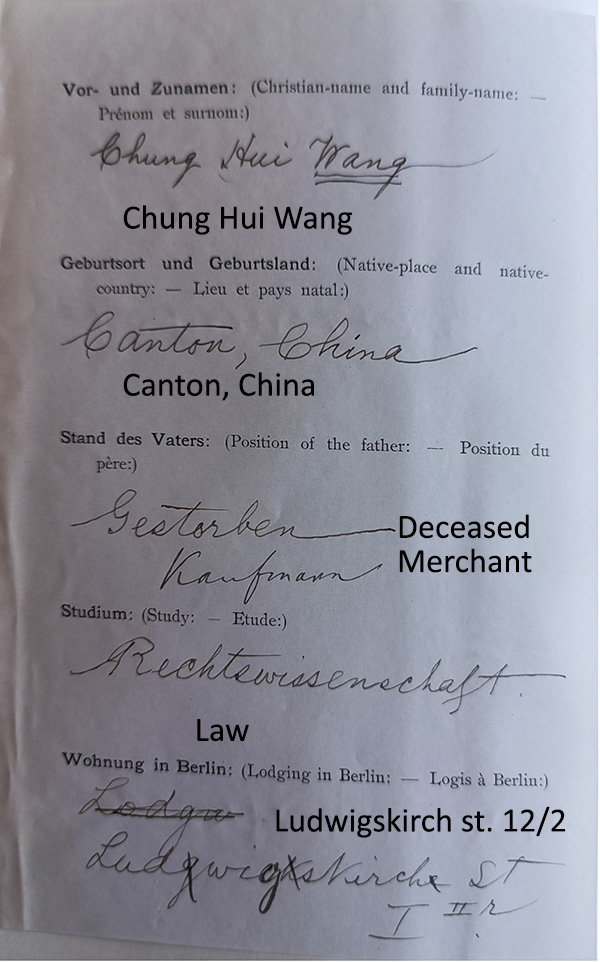 Vor- und Zunamen: (Christian-name and family-name: —
Prénom et surnom:)
Chung Hui Wang
Chung Hui Wang
Geburtsort und Geburtsland: (Native-place and native-
country: — Lieu et pays natal:)
Canton, China
Canton, China
Stand des Vaters: (Position of the father: — Position du
père:)
Gestorben
Deceased
Kaufmann
Merchant
Studium: (Study: — Etude:)
Rechtswissenschaft.
Law
Wohnung in Berlin: (Lodging in Berlin: — Logis à Berlin:)
Ludwigskirch st. 12/2
Ludwigskirch St